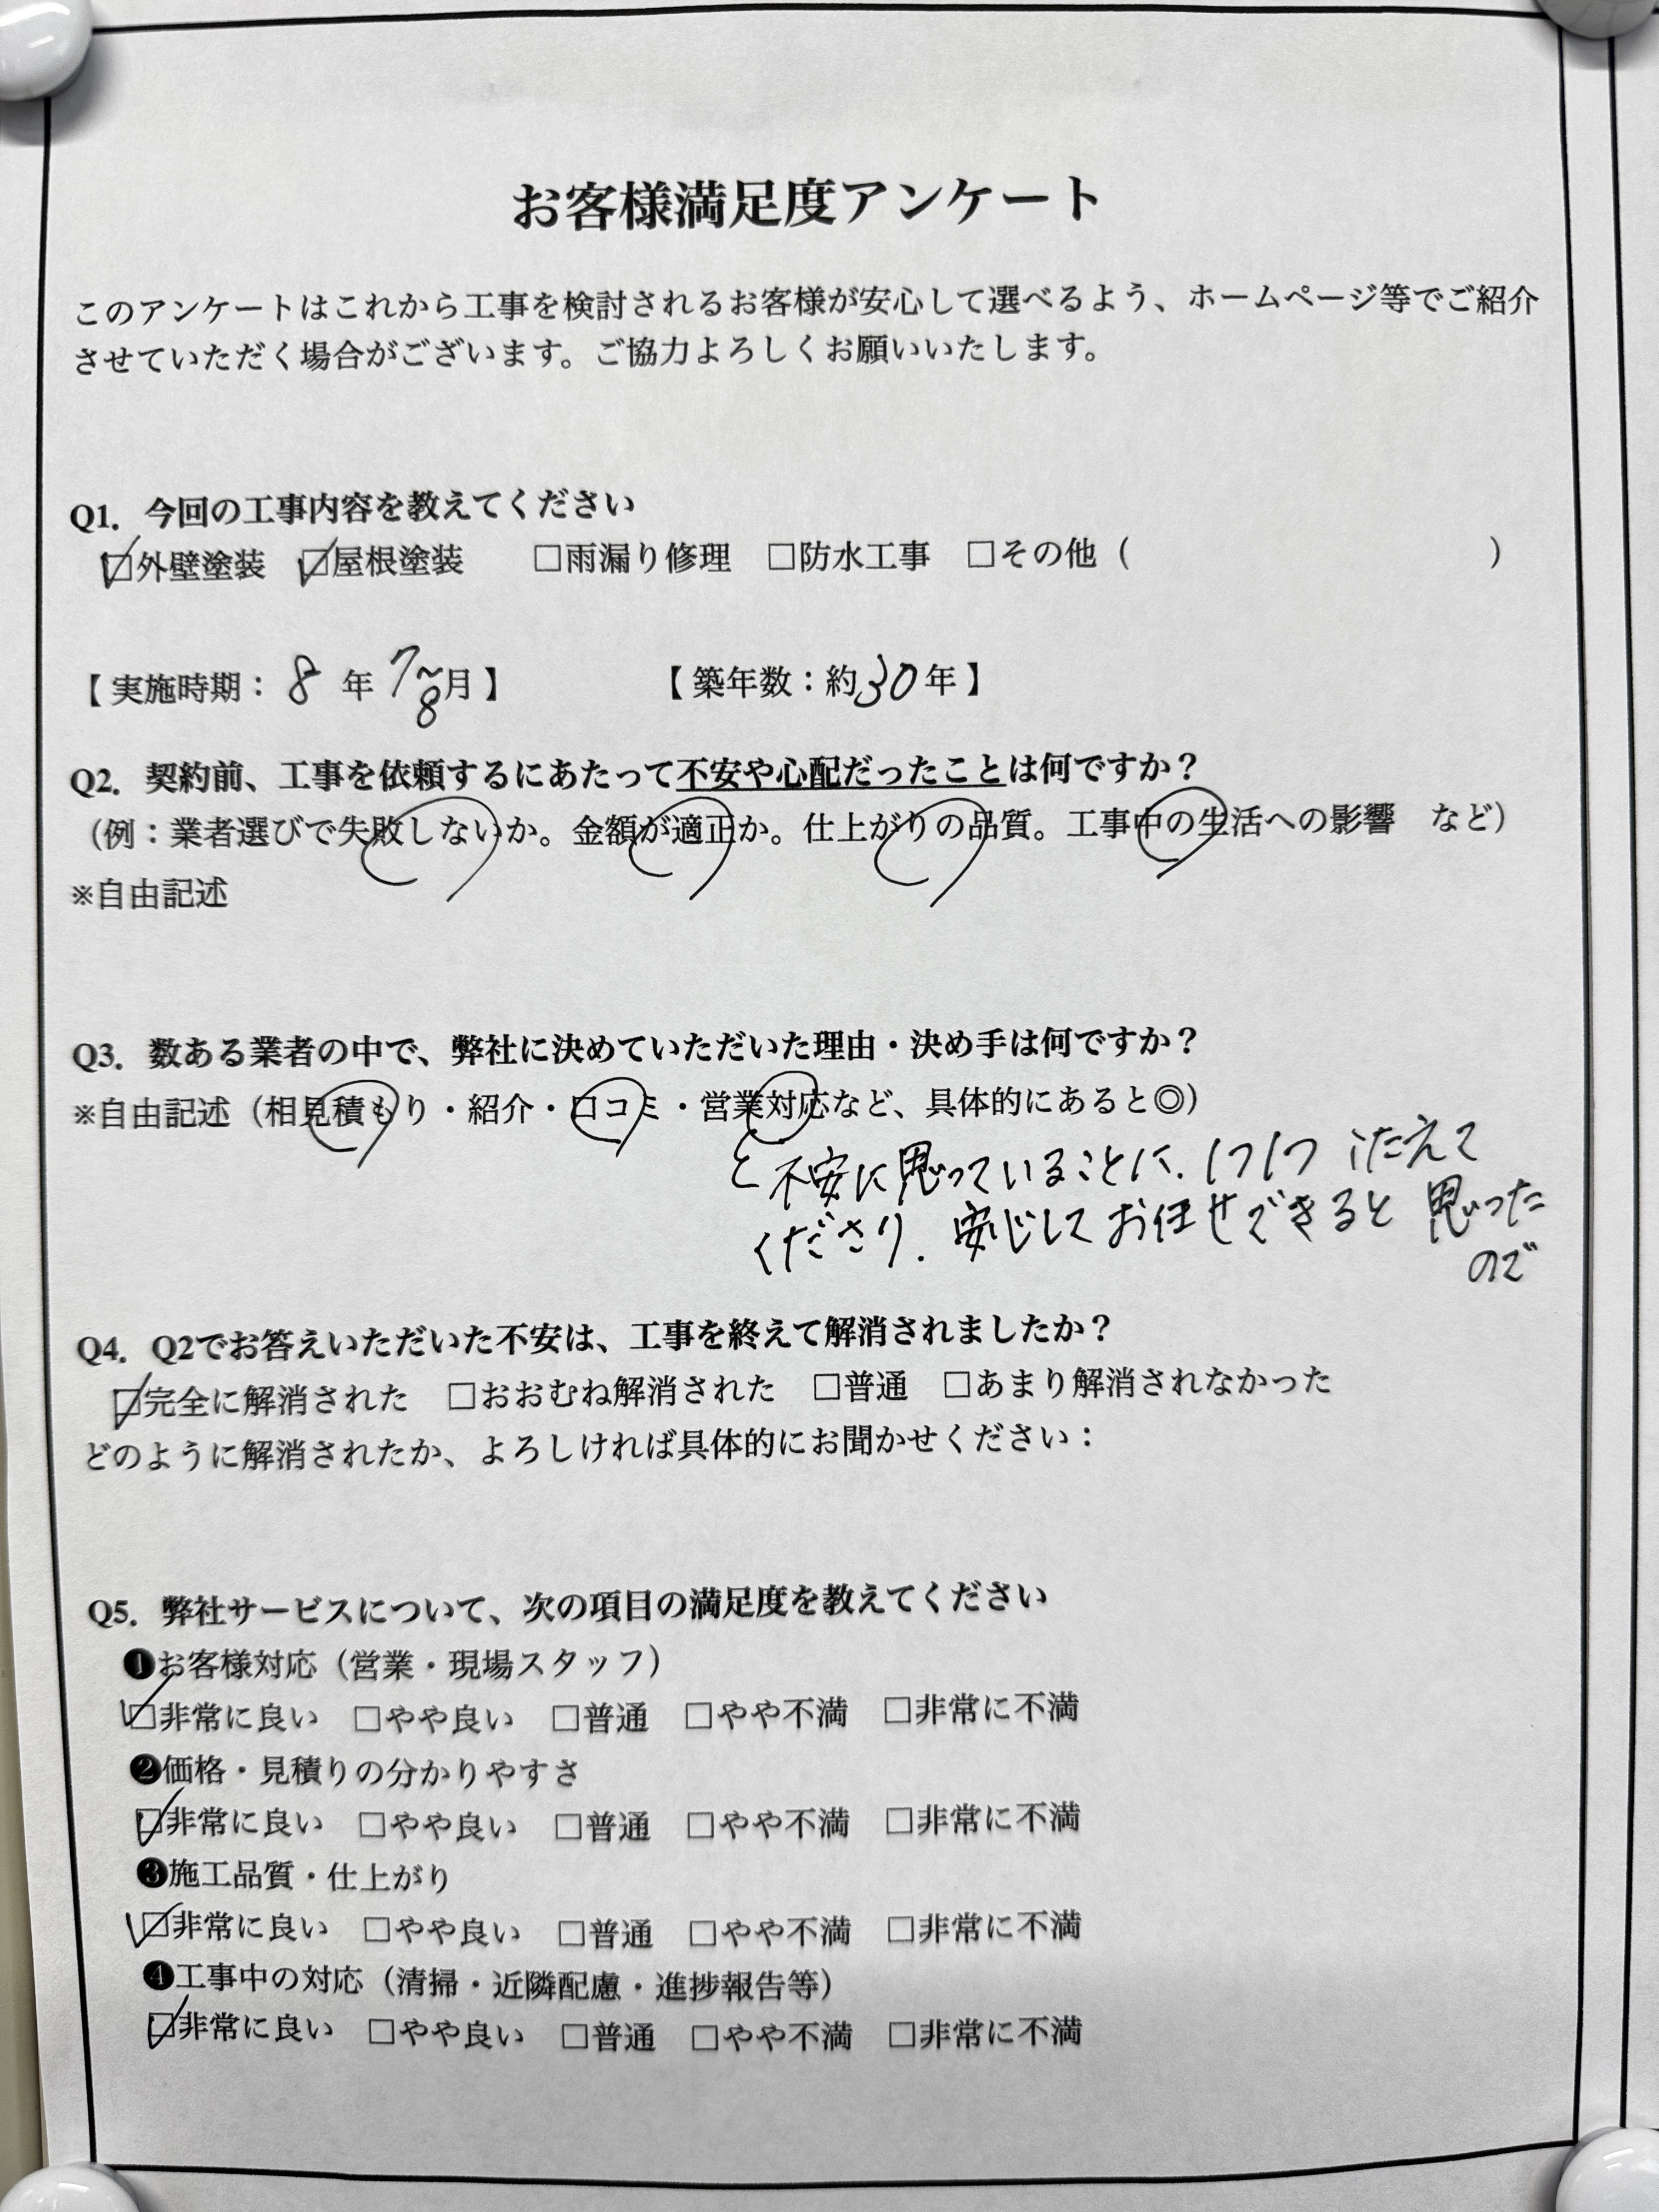 お客様満足度アンケート
このアンケートはこれから工事を検討されるお客様が安心して選べるよう、ホームページ等でご紹介
させていただく場合がございます。ご協力よろしくお願いいたします。
Q1. 今回の工事内容を教えてください
☑外壁塗装 ☑屋根塗装 □雨漏り修理 □防水工事 □その他（ ）
【実施時期：8年7~8月】 【築年数：約30年】
Q2. 契約前、工事を依頼するにあたって不安や心配だったことは何ですか？
（例：業者選びで失敗しないか。金額が適正か。仕上がりの品質。工事中の生活への影響 など）
※自由記述
Q3. 数ある業者の中で、弊社に決めていただいた理由・決め手は何ですか？
※自由記述（相見積もり・紹介・口コミ・営業対応など、具体的にあると◎）
と不安に思っていることに、1つ1つ こたえて
くださり、安心してお任せできると思った
ので
Q4. Q2でお答えいただいた不安は、工事を終えて解消されましたか？
☑完全に解消された □おおむね解消された □普通 □あまり解消されなかった
どのように解消されたか、よろしければ具体的にお聞かせください：
Q5. 弊社サービスについて、次の項目の満足度を教えてください
❶お客様対応（営業・現場スタッフ）
☑非常に良い □やや良い □普通 □やや不満 □非常に不満
❷価格・見積りの分かりやすさ
☑非常に良い □やや良い □普通 □やや不満 □非常に不満
❸施工品質・仕上がり
☑非常に良い □やや良い □普通 □やや不満 □非常に不満
❹工事中の対応（清掃・近隣配慮・進捗報告等）
☑非常に良い □やや良い □普通 □やや不満 □非常に不満